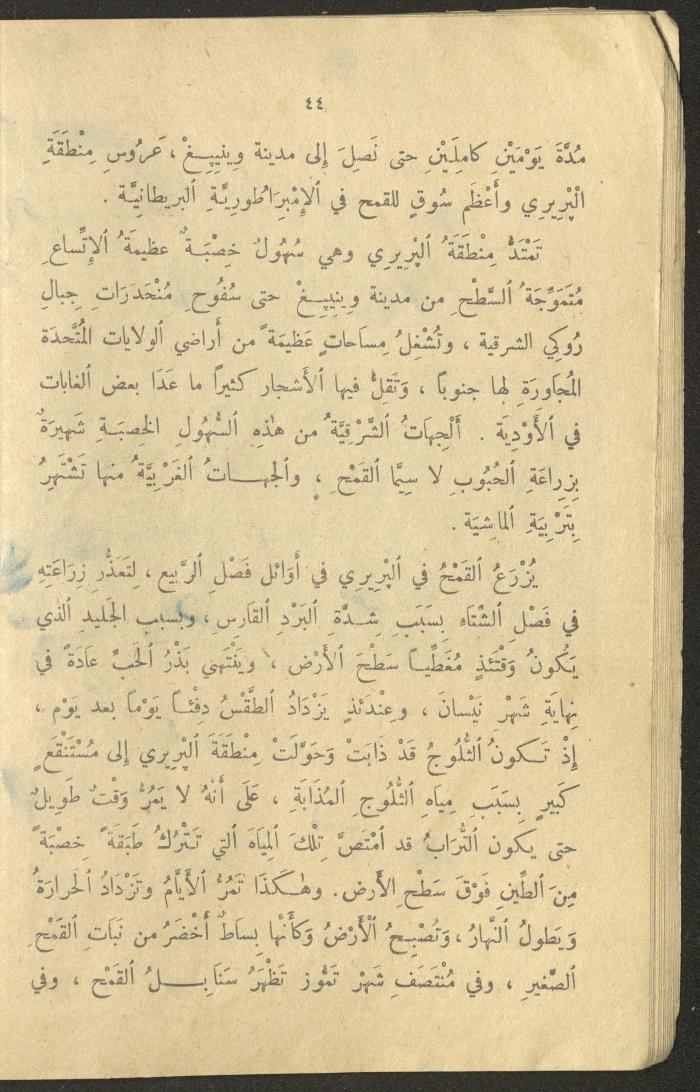 ٤٤
مُدَّةَ يَوْمَيْنِ كامِلَيْنِ حتى نَصِلَ إِلى مدينة وِينِيپِـغْ ، عَروُسِ مِنْطَقَةِ
الْپْرِيرِي وأَعْظَم سُوقٍ للقمح في ٱلإِمْبِرَاطُورِيَّةِ ٱلبريطانِيَّة .
تَمْتَدُّ مِنْطَقَةُ ٱلپْرِيرِي وهي سُهُولٌ خِصْبَـةٌ عظيمَةُ ٱلإِتِّساعِ
مُتَمَوِّجَةُ ٱلسَّطْحِ من مدينة وِينِيپِـغْ حتى سُفُوحِ مُنْحَدَرَاتِ جِبالِ
رُوكِي الشرقية ، وتُشْغِلُ مِساحاتٍ عَظيمَةً من أَراضي الولايات المُتَّحدَة
المُجَاوِرَةِ لها جنوباً ، وَتَقلُّ فيها ٱلأَشجار كثيراً ما عَدَا بعض ٱلغابات
في ٱلأَوْدِيَة . أَلْجِهَاتُ ٱلشَّرْقِيَّةُ من هٰذِهِ ٱلسُّهُولِ الخِصبَـةِ شَهِيرَةٌ
بِزِراعَةِ ٱلحُبُوبِ لا سِيَّما ٱلقَمْحِ ، وٱلجهـاتُ ٱلغَرْبِيَّةُ منها تَشْتَهِرُ
بِتَرْبِيَةِ ٱلماشِيَة .
يُزْرَعُ ٱلقَمْحُ في ٱلپْرِيرِي في أَوَائل فَصْلِ ٱلرَّبيع ، لِتَعَذُّرِ زِرَاعَتِهِ
في فَصْلِ ٱلشِّتَاءِ بِسَبَبِ شِـدَّةِ ٱلبَرْدِ ٱلقَارِسِ ، وبسبب الجَليدِ ٱلَّذي
يَكُونُ وَقْتَئذٍ مُغَطِّيـاً سَطْحَ ٱلأَرْض ، ويَنْتَهي بَذْرُ ٱلحَبِّ عَادَةً في
نِهايَةِ شَهْرِ نَيْسانَ ، وعِنْدَئذٍ يَزْدَادُ ٱلطَّقْسُ دِفْئـاً يَوْماً بعد يَوْم ،
إِذْ تَـكونُ ٱلثُّلُوجُ قَدْ ذَابَتْ وَحَوَّلَتْ مِنْطَقَةَ ٱلپْرِيرِي إِلى مُسْتَنْقَعٍ
كَبيرٍ بِسَبَبِ مِياهِ ٱلثُّلُوجِ ٱلمُذَابَةِ ، عَلَى أَنَّهُ لا يَمُرُّ وَقْتٌ طَوِيلٌ
حتى يكون ٱلتُّرَابُ قد ٱمْتَصَّ تِلْكَ ٱلمِيَاهَ ٱلتي تَـتْرُكُ طَبَقَةً خِصْبَةً
مِنَ ٱلطِّينِ فَوْقَ سَطْحِ الأَرض. وهٰـكَذَا تَمُرُّ ٱلأَيَّامُ وتَزْدَادُ ٱلحَرارَةُ
وَيَطولُ ٱلنَّهارُ ، وَتُصْبِـحُ ٱلْأَرْضُ وَكأَنَّها بِساطٌ أَخْضَرُ من نَبَاتِ ٱلقَمْحِ
ٱلصَّغيرِ ، وفي مُنْتَصَفِ شَهْرِ تَمُّوز تَظْهَرُ سَنَابِـلُ ٱلقَمْحِ ، وفي